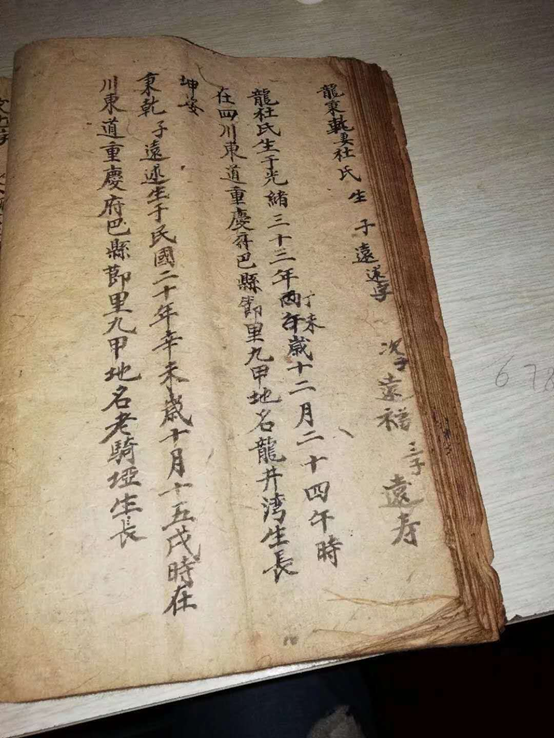 龍秉乾妻杜氏 生 子遠述字 次子遠福 三子遠寿
龍杜氏生于光緒三十三年丙午丁未歲十二月二十四午時
在四川東道重慶府巴縣節里九甲地名龍井湾生長
坤
秉乾 子遠述生于民國二十年辛未歲十月十五戌時在
川東道重慶府巴縣節里九甲地名老騎埡生長
678